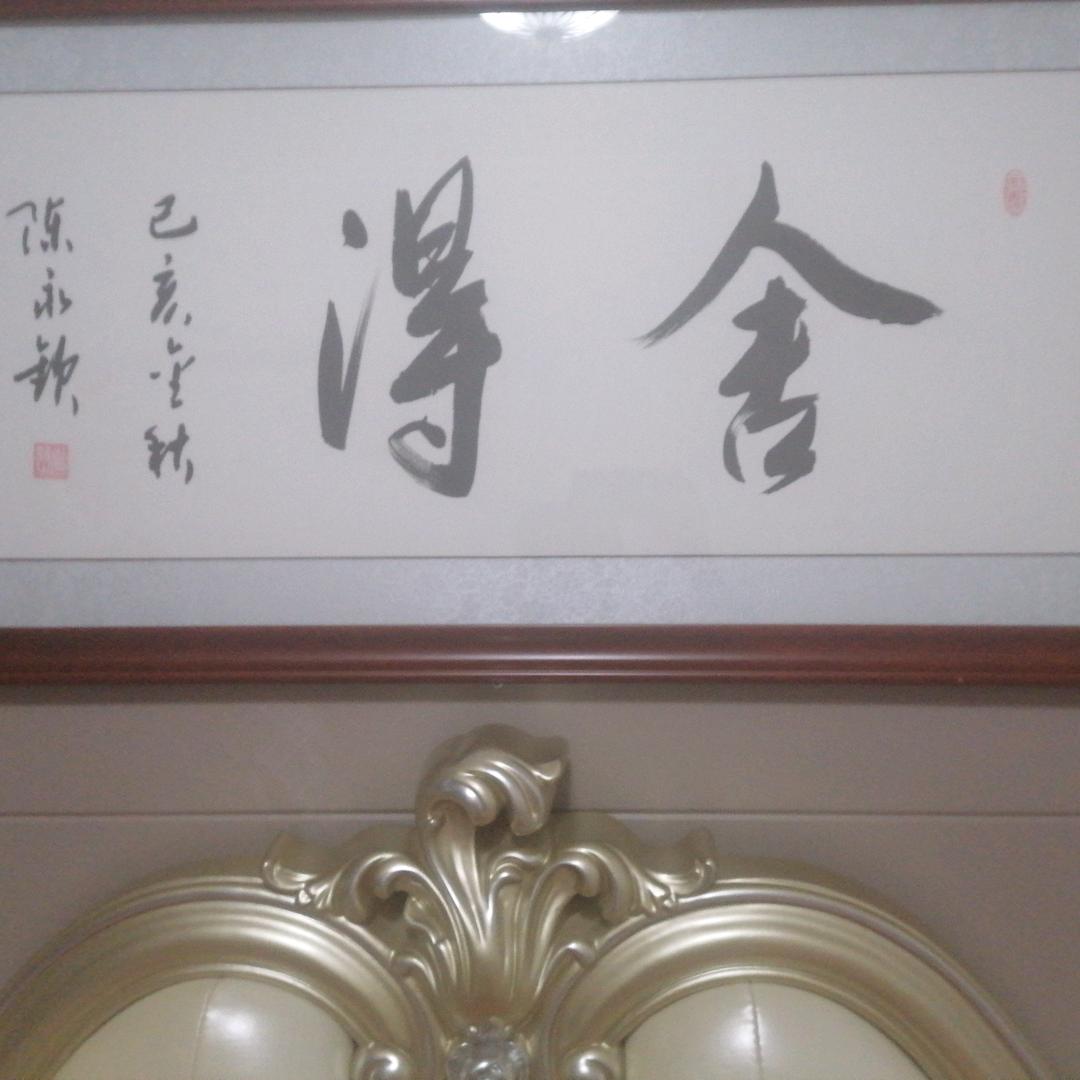 舍得
己亥金秋
陈永钦